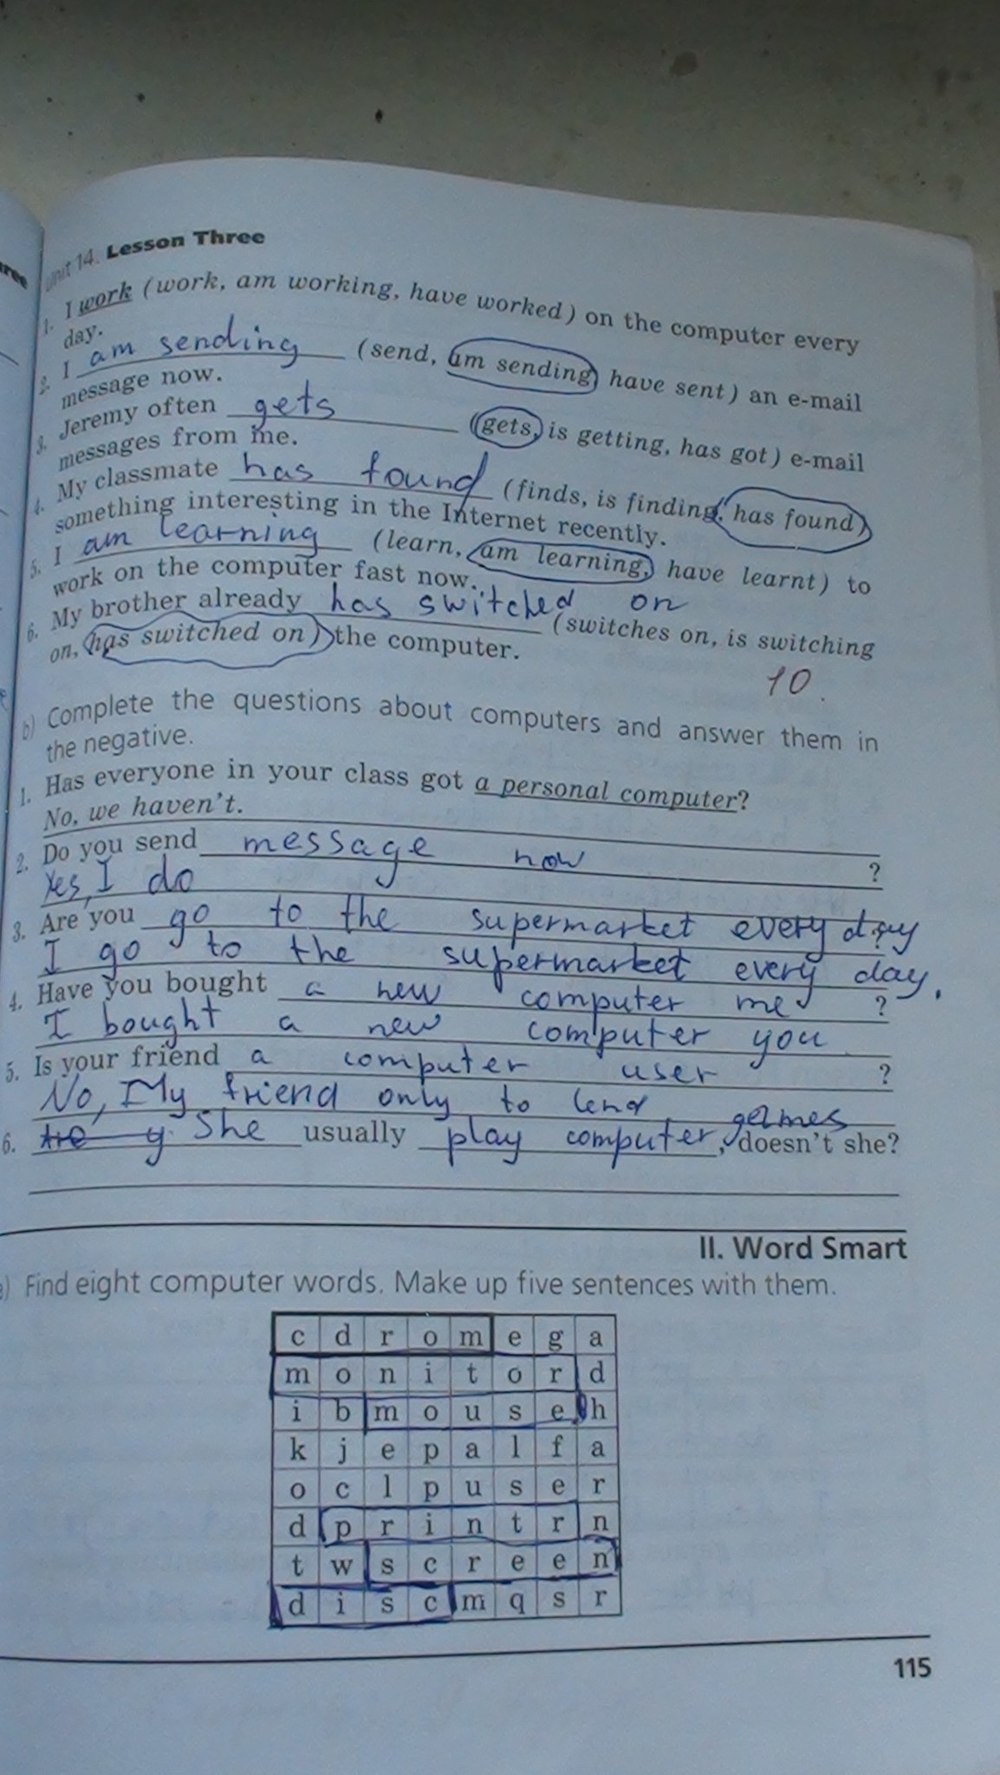 Unit 14. Lesson Three
1. I work (work, am working, have worked) on the computer every
day.
2. I am sending (send, am sending, have sent) an e-mail
message now.
3. Jeremy often gets (gets, is getting, has got) e-mail
messages from me.
4. My classmate has found (finds, is finding, has found)
something interesting in the Internet recently.
5. I am learning (learn, am learning, have learnt) to
work on the computer fast now.
6. My brother already has switched on (switches on, is switching
on, has switched on) the computer.
10.
b) Complete the questions about computers and answer them in
the negative.
1. Has everyone in your class got a personal computer?
No, we haven't.
2. Do you send message now ?
Yes, I do
3. Are you go to the supermarket every day ?
I go to the supermarket every day.
4. Have you bought a new computer me ?
I bought a new computer you
5. Is your friend a computer user ?
No, My friend only to lend
6. She usually play computer games, doesn't she?
II. Word Smart
) Find eight computer words. Make up five sentences with them.
c d r o m e g a
m o n i t o r d
i b m o u s e h
k j e p a l f a
o c l p u s e r
d p r i n t r n
t w s c r e e n
d i s c m q s r
115